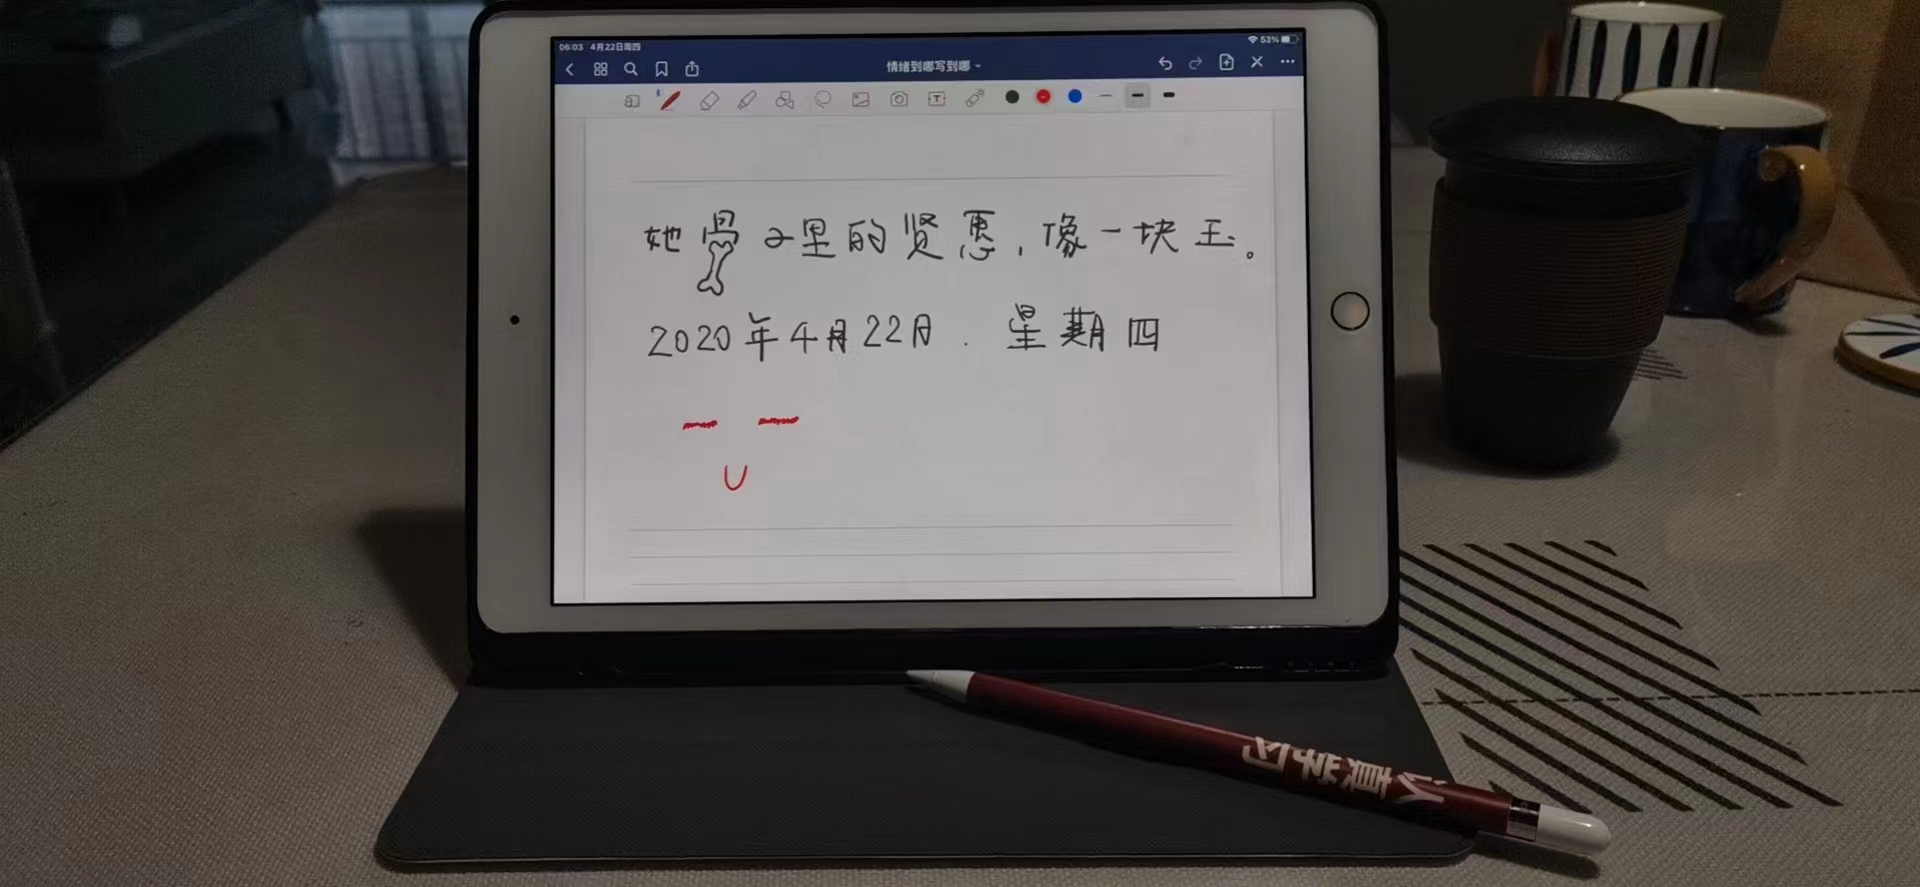 06:03 4月22日周四
53%
情绪到哪写到哪
T
她骨子里的贤惠，像一块玉。
2020年4月22日．星期四
认真学习